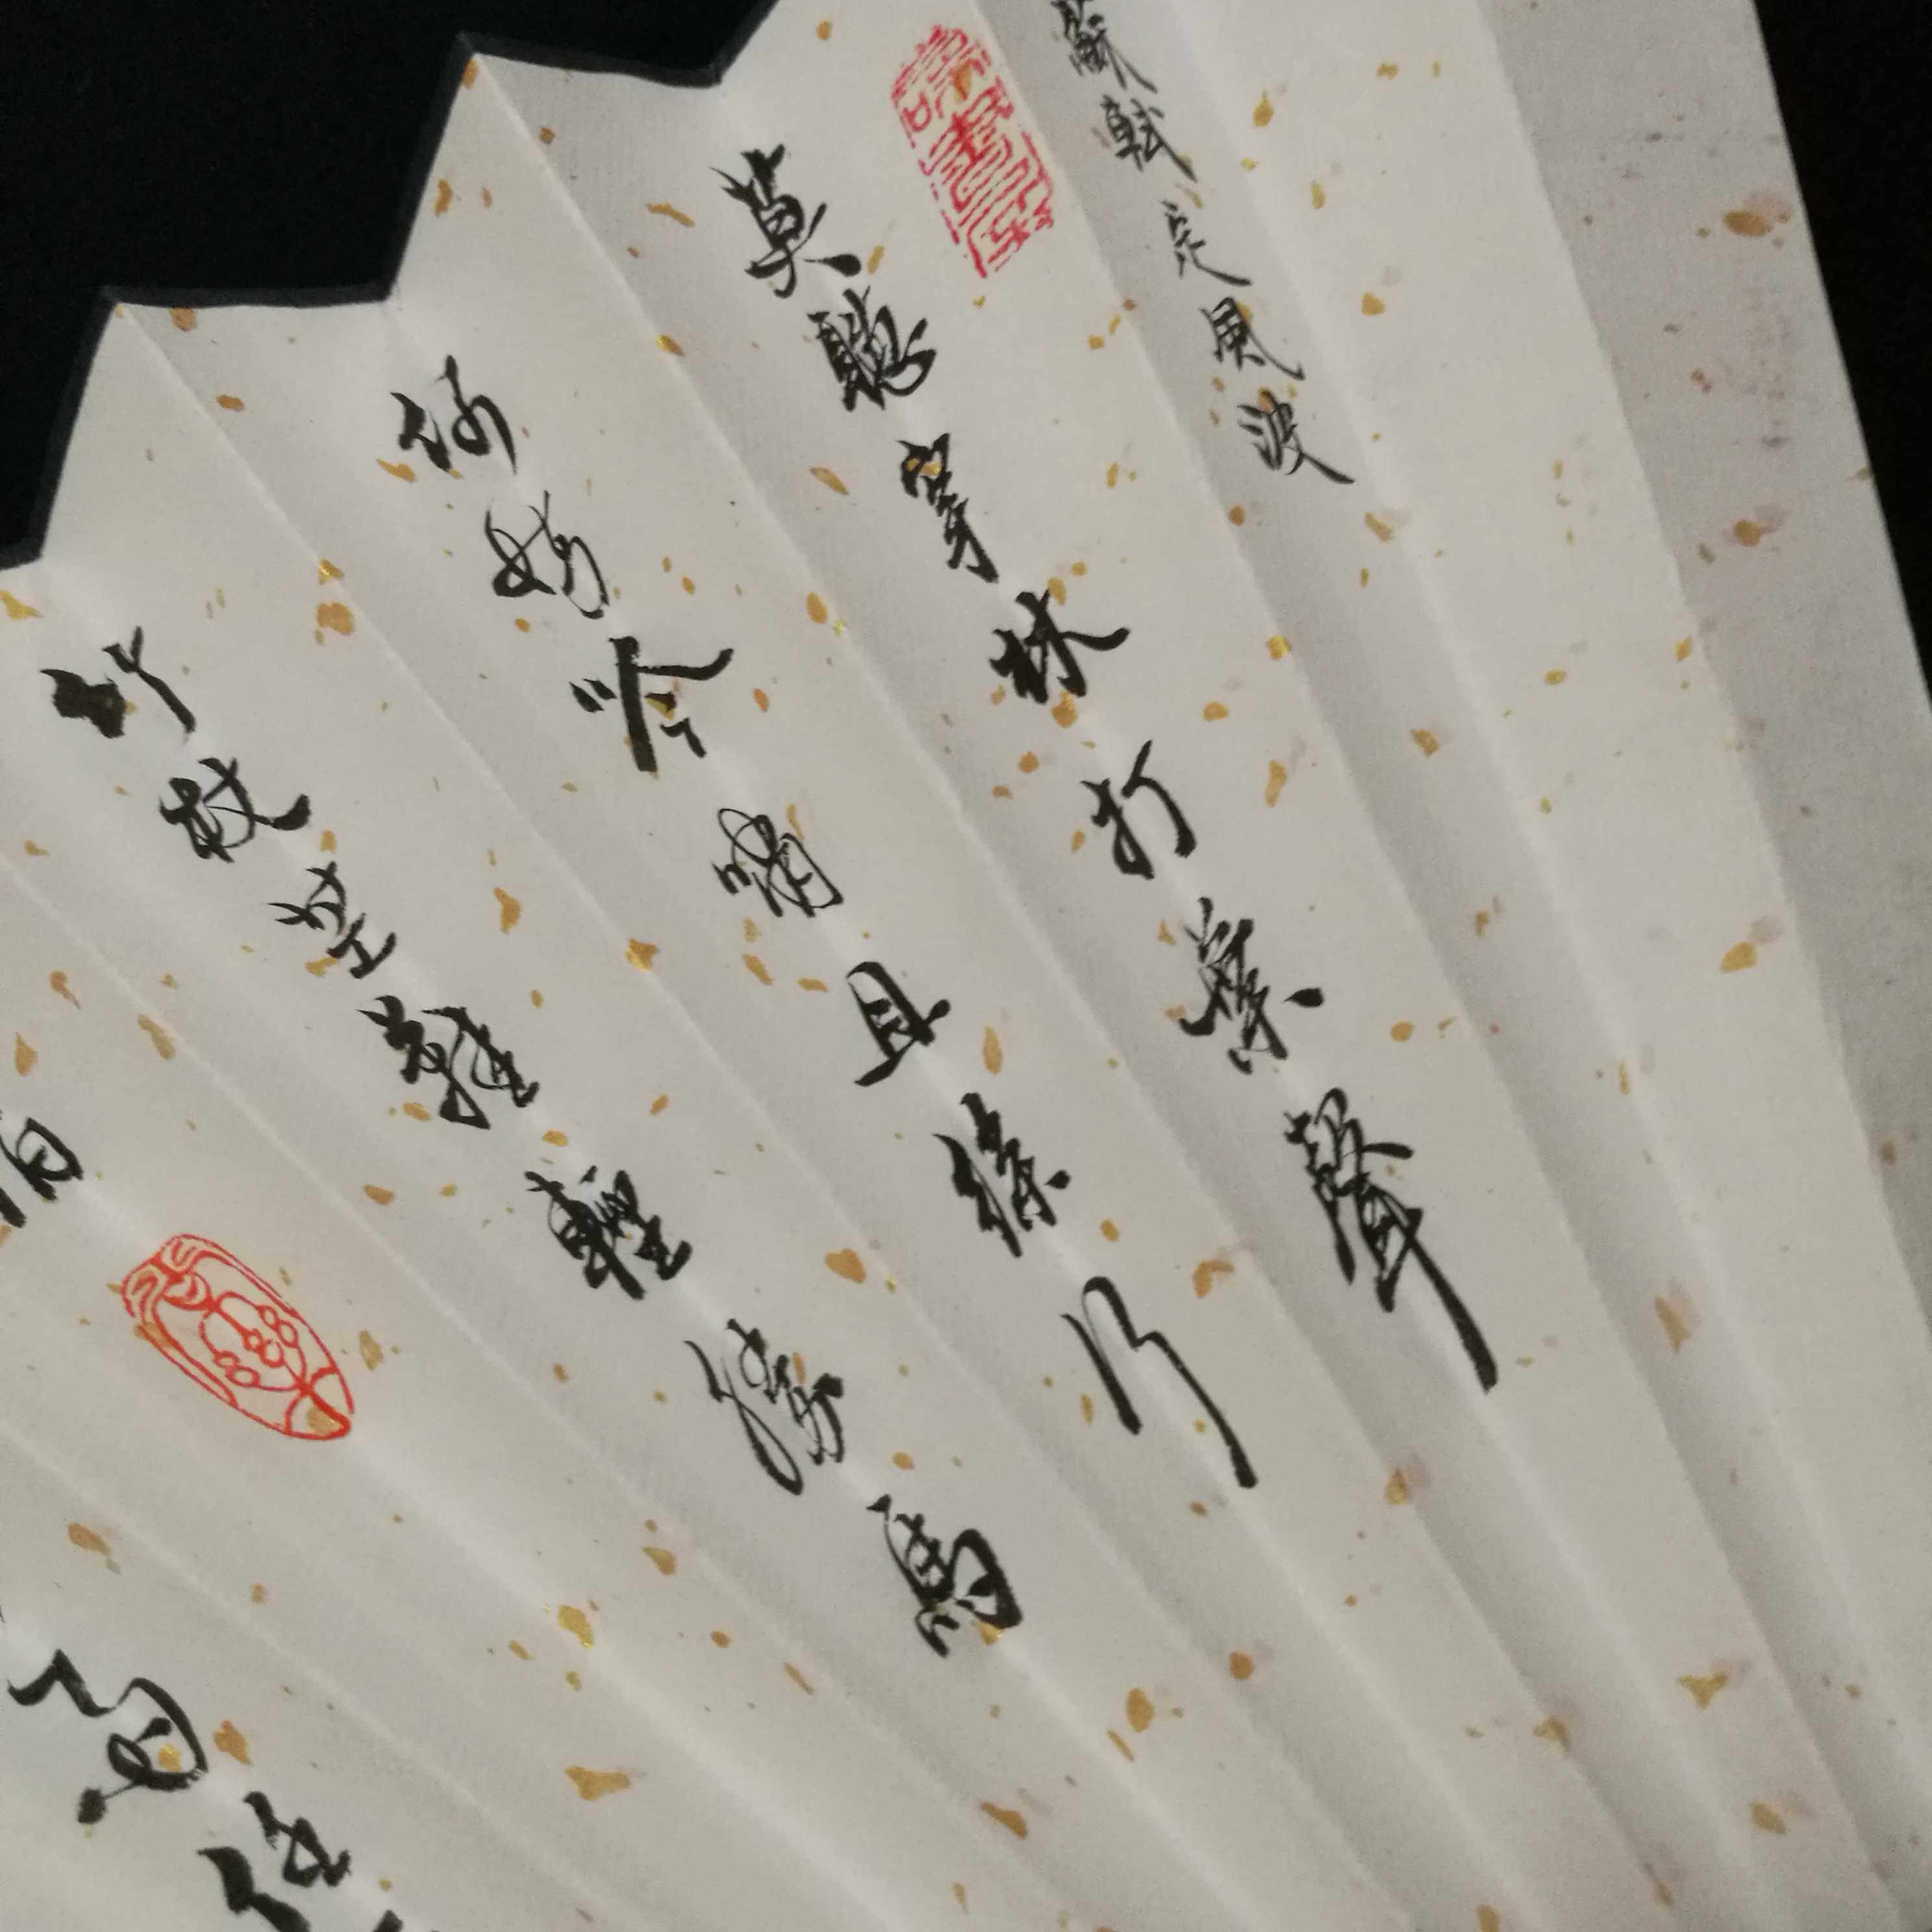 蘇軾定風波
莫聽穿林打葉聲
何妨吟嘯且徐行
竹杖芒鞋輕勝馬